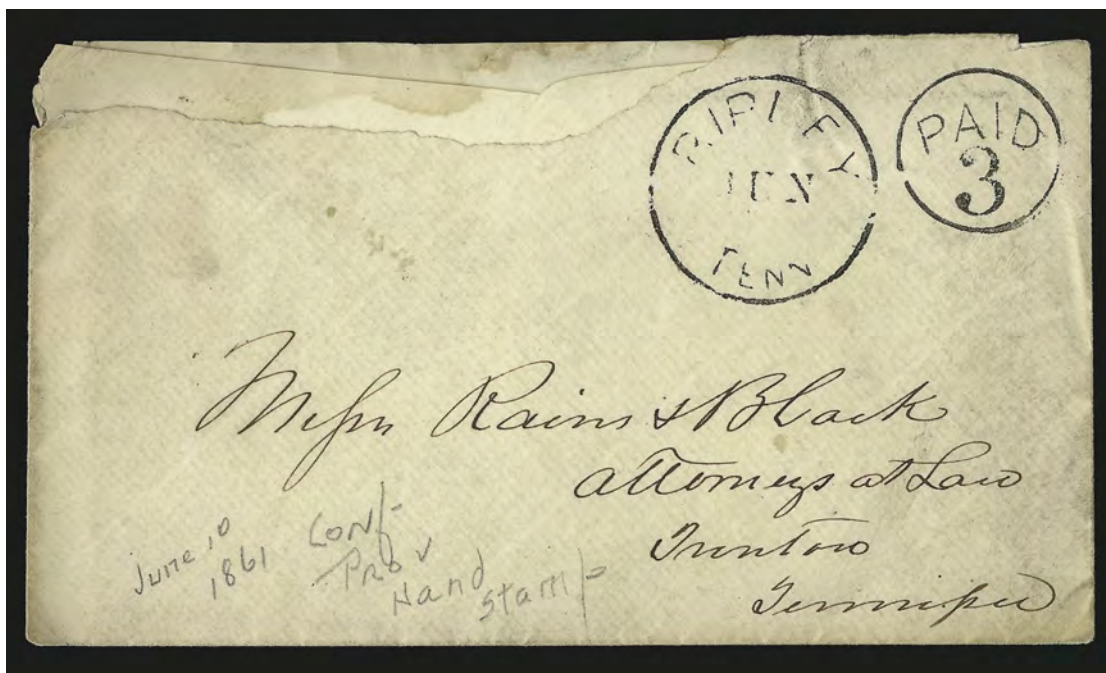 RIPLEY
JUN
TENN
PAID
3
Messrs Rains & Black
Attorneys at Law
Trenton
Tennessee
June 10
1861
Conf-
Prov
Hand
Stamp